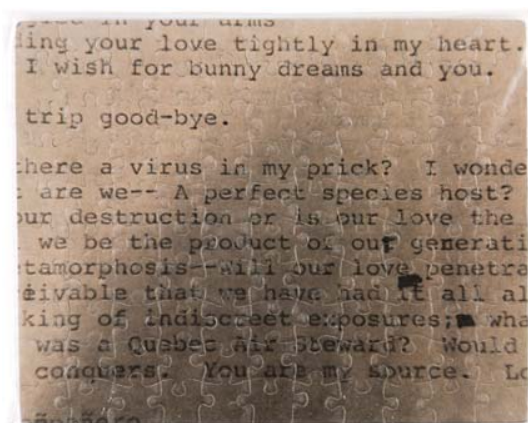 in your arms
ing your love tightly in my heart.
I wish for bunny dreams and you.
trip good-bye.
here a virus in my prick? I wonde
are we-- A perfect species host?
our destruction or is our love the
we be the product of our generati
etamorphosis--Will our love penetra
eivable that we have had it all al
king of indiscreet exposures; wha
was a Quebec Air Steward? Would
conquers. You are my source. Lo